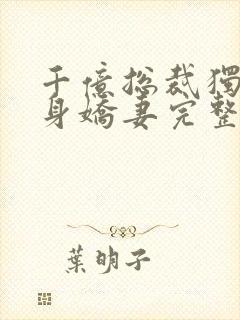 千億總裁獨
身嬌妻完整
葉明子